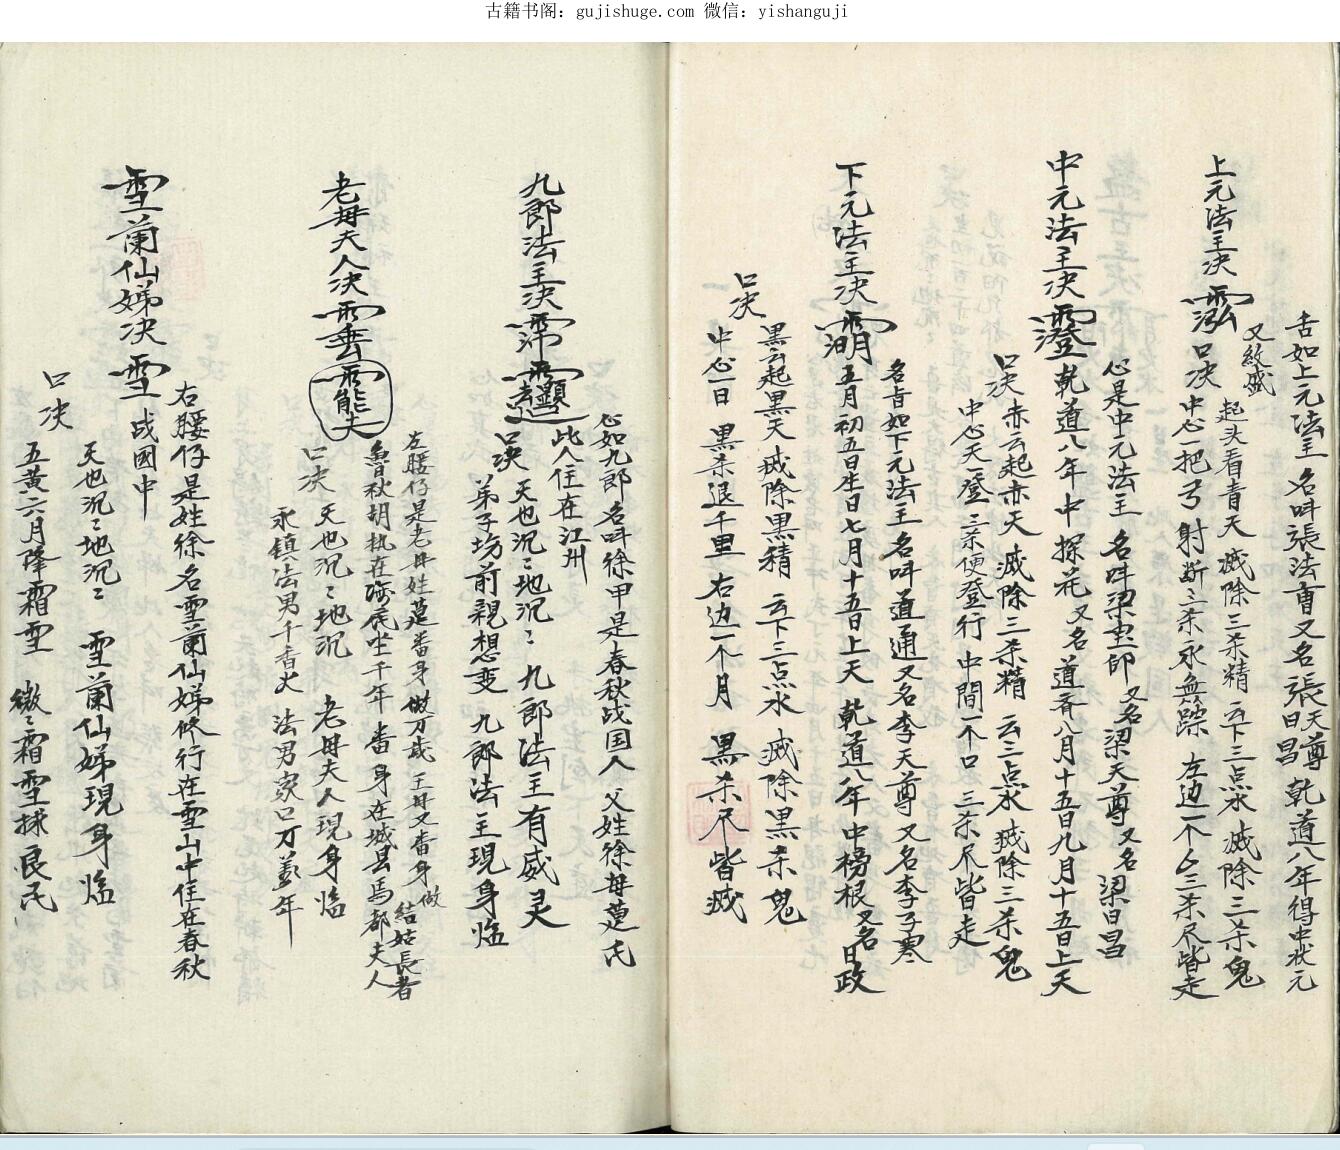 古籍书阁：gujishuge.com 微信：yishanguji
舌如上元法主 名叫張法 又名張天尊 日昌 乾道八年得中状元
又紋盛
上元法主决
起头看青天 滅除三杀精 云下三点水 滅除三杀鬼
口决 中心一把弓 射断三杀永無踪 左边一个 三杀尽皆走
心是中元法主 名叫梁 又名梁天尊 又名梁日昌
中元法主决 乾道八年中探花 又名道 八月十五日九月十五日上天
口决 赤云起赤天 滅除三杀精 云三点水 滅除三杀鬼
中心天一登 三杀便登行 中間一个口 三杀尽皆走
名旨如下元法主名叫道通 又名李天尊 又名李子寒
下元法主决 五月初五日生日七月十五日上天 乾道八年中榜根 又名日政
口决
黑云起黑天 滅除黑精 云下三点水 滅除黑杀鬼
中心一日 黑杀退千里 右边一个月 黑杀尽皆滅
心如九郎 名叫徐甲 是春秋战国人 父姓徐母 氏
九郎法主决 此人住在江州
口决 天也沉〻地沉〻 九郎法主有威灵
弟子坊前親想变 九郎法主現身临
左腰仔是老母姓 番身 做万歲 王母又番身 做結姑長者
老母夫人决 魯秋胡 在海底坐千年 番身在城县馬都夫人
口决 天也沉〻地沉 老母夫人現身临
永镇法男千香火 法男家口万万年
右腰仔是姓徐名雪蘭仙娣修行在雪山中住在春秋
雪蘭仙娣决 雪 战國中
天也沉〻地沉〻 雪蘭仙娣現身临
口决
五黄六月降霜雪 〻霜雪 良民